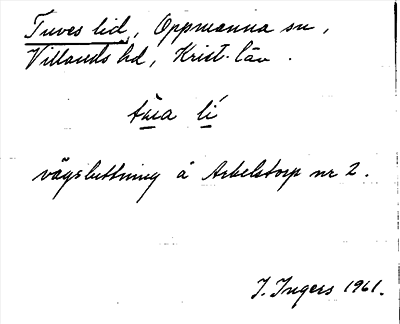 Tuves lid, Oppmanna sn,
Villands hd, Krist. län.
li
vägsluttning å Arkelstorp nr 2.
J. Ingers 1961.